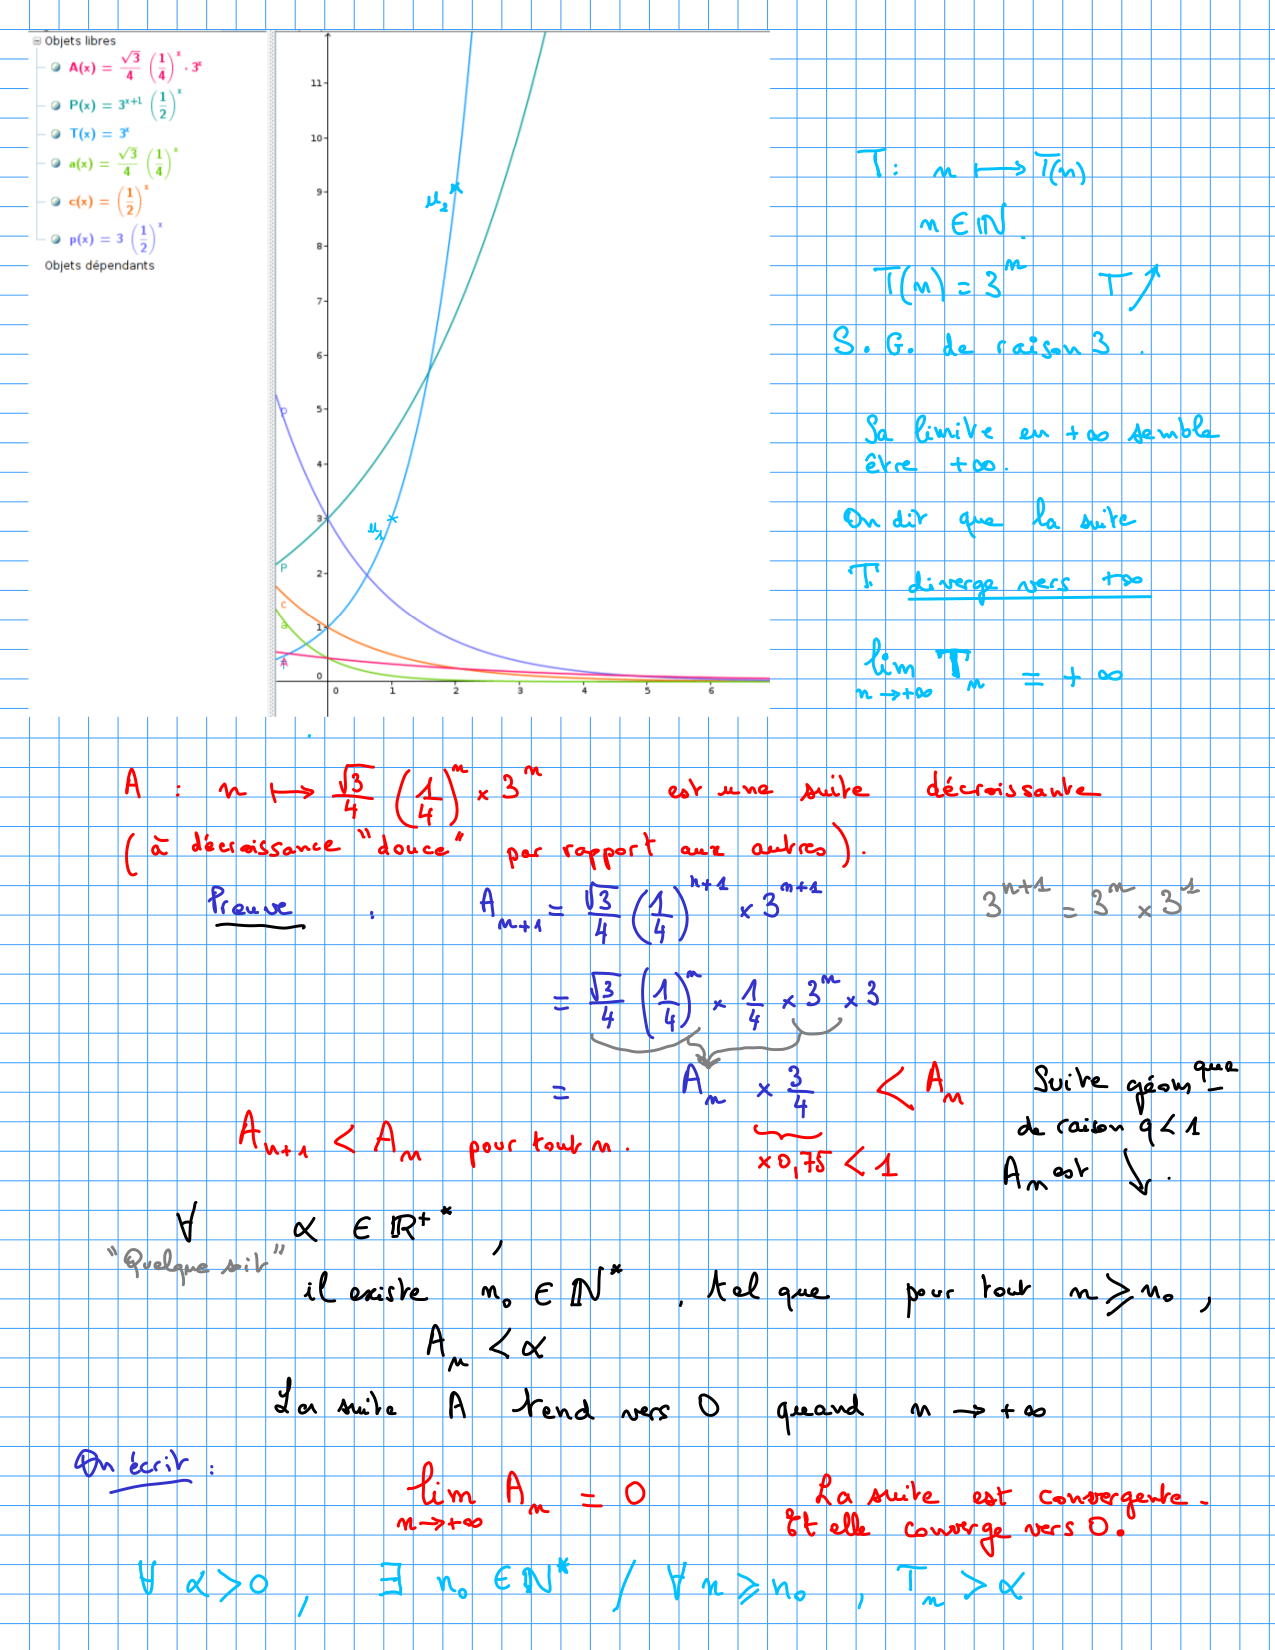 Objets libres
A(x) = √3/4 (1/4)^x · 3^x
P(x) = 3^(x+1) (1/2)^x
T(x) = 3^x
a(x) = √3/4 (1/4)^x
c(x) = (1/2)^x
p(x) = 3 (1/2)^x
Objets dépendants
11
10
9
8
7
6
5
4
3
2
1
0
0 1 2 3 4 5 6
p
P
c
a
A
u₂
u₁
T : n ⟼ T(n)
n ∈ ℕ.
T(n) = 3^n T ↗
S. G. de raison 3.
Sa limite en +∞ semble
être +∞.
On dit que la suite
T diverge vers +∞
lim T_n = +∞
n→+∞
A : n ⟼ √3/4 (1/4)^n × 3^n est une suite décroissante
(à décroissance "douce" par rapport aux autres).
Preuve : A_(n+1) = √3/4 (1/4)^(n+1) × 3^(n+1) 3^(n+1) = 3^n × 3^1
= √3/4 (1/4)^n × 1/4 × 3^n × 3
= A_n × 3/4 < A_n Suite géom^que
A_(n+1) < A_n pour tout n. ×0,75 < 1 de raison q < 1
A_n est ↘.
∀ α ∈ ℝ+*,
"Quelque soit"
il existe n₀ ∈ ℕ*, tel que pour tout n ⩾ n₀,
A_n < α
La suite A tend vers 0 quand n → +∞
On écrit :
lim A_n = 0 La suite est convergente.
n→+∞ Et elle converge vers 0.
∀ α > 0, ∃ n₀ ∈ ℕ* / ∀ n ⩾ n₀, T_n > α